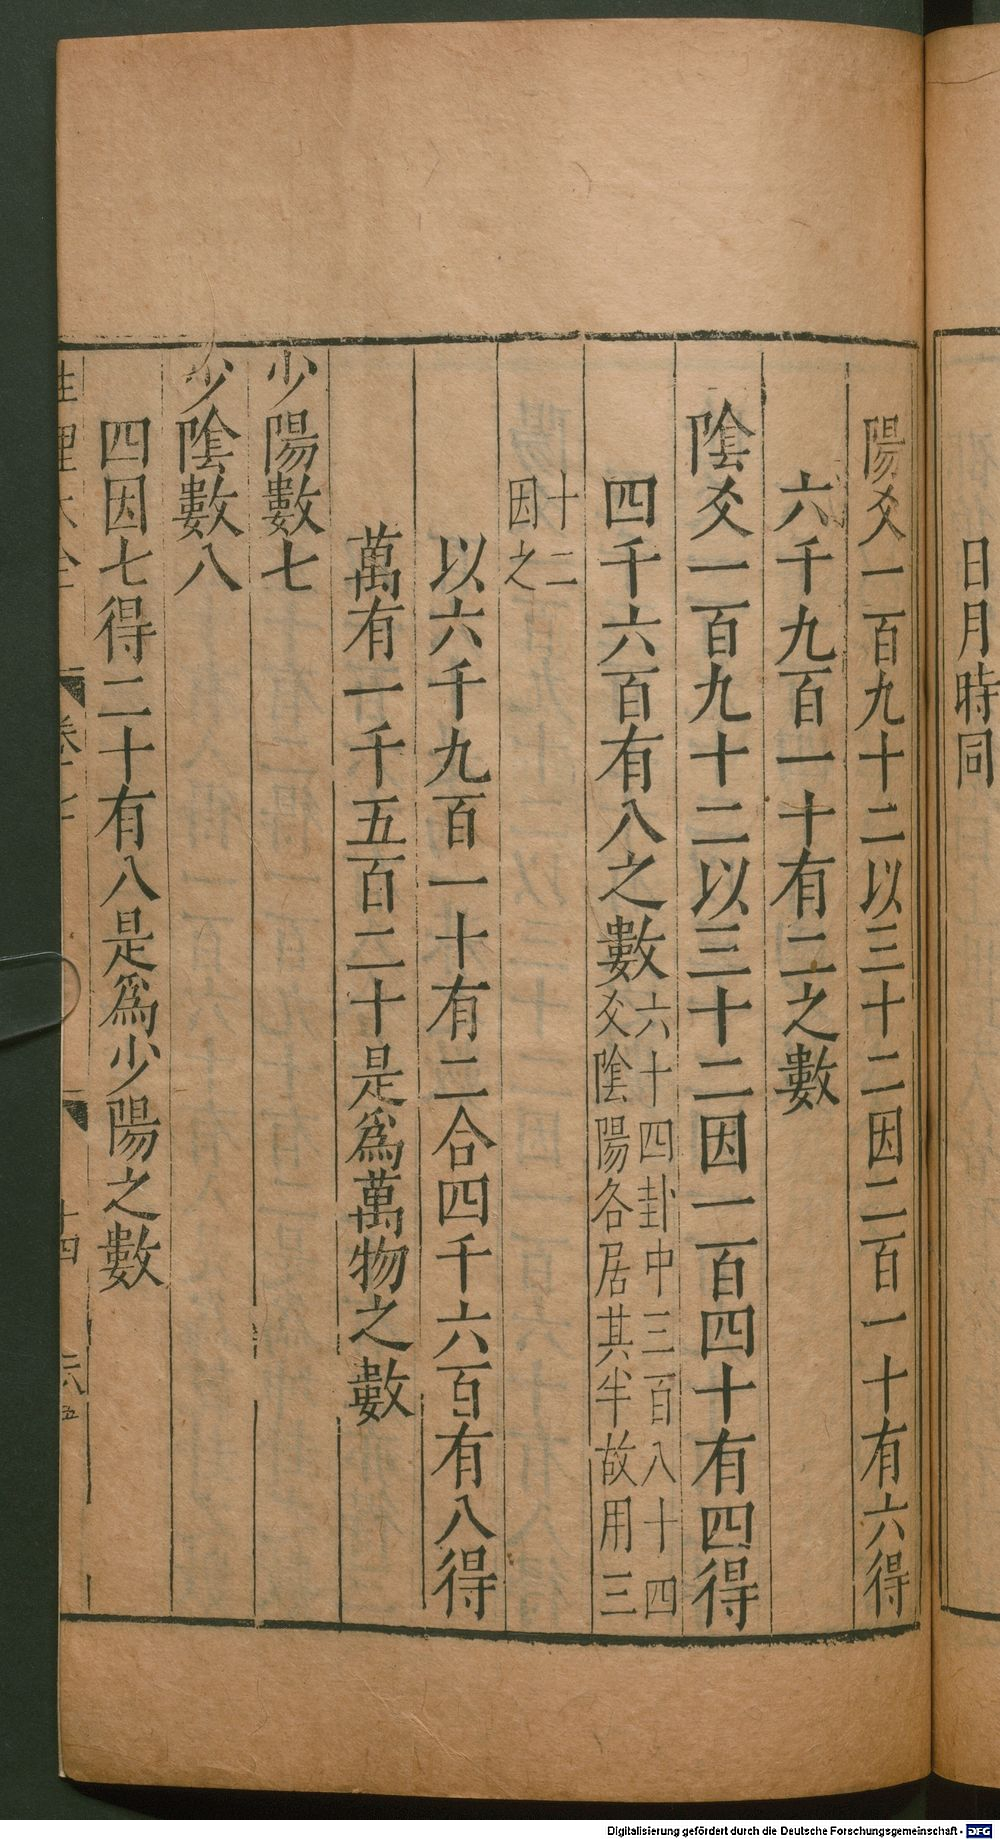 日月時同
陽爻一百九十二以三十二因二百一十有六得
六千九百一十有二之數
陰爻一百九十二以三十二因一百四十有四得
四千六百有八之數六十四卦中三百八十四
爻陰陽各居其半故用三
十二
因之
以六千九百一十有二合四千六百有八得
萬有一千五百二十是爲萬物之數
少陽數七
少陰數八
四因七得二十有八是爲少陽之數
性理大全 卷十七 十四
Digitalisierung gefördert durch die Deutsche Forschungsgemeinschaft - DFG